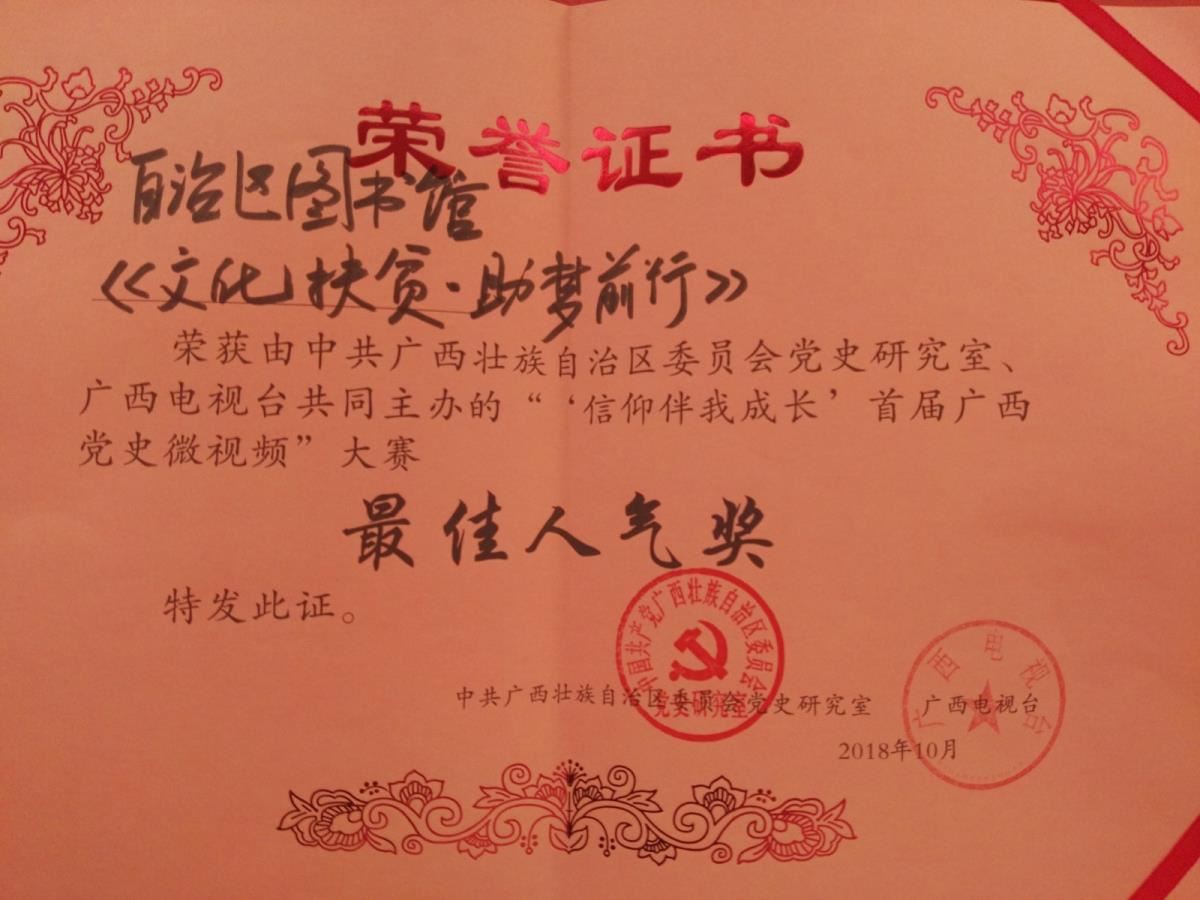 荣誉证书
自治区图书馆
《文化扶贫·助梦前行》
荣获由中共广西壮族自治区委员会党史研究室、
广西电视台共同主办的“‘信仰伴我成长’首届广西
党史微视频”大赛
最佳人气奖
特发此证。
中国共产党广西壮族自治区委员会
党史研究室
广西电视台
中共广西壮族自治区委员会党史研究室 广西电视台
2018年10月